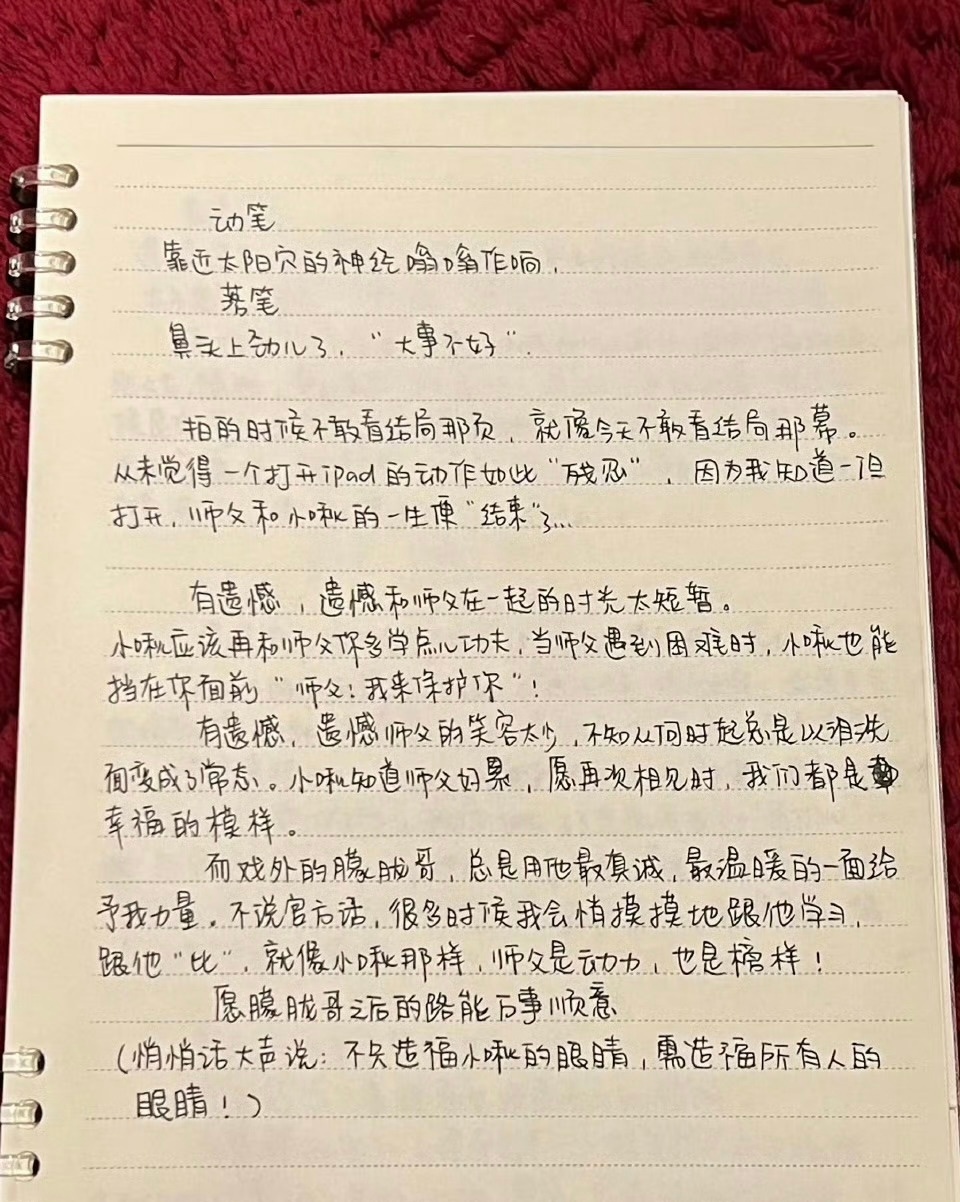 动笔
靠近太阳穴的神经嗡嗡作响，
落笔
鼻头上劲儿了，“大事不好”.
拍的时候不敢看结局那页，就像今天不敢看结局那幕。
从未觉得一个打开iPad的动作如此“残忍”，因为我知道一但
打开，师父和小啾的一生便“结束”了...
有遗憾，遗憾和师父在一起的时光太短暂。
小啾应该再和师父你多学点儿功夫，当师父遇到困难时，小啾也能
挡在你面前“师父！我来保护你”！
有遗憾，遗憾师父的笑容太少，不知从何时起总是以泪洗
面变成了常态。小啾知道师父好累，愿再次相见时，我们都是
幸福的模样。
而戏外的朦胧哥，总是用他最真诚，最温暖的一面给
予我力量。不说官方话，很多时候我会悄摸摸地跟他学习，
跟他“比”，就像小啾那样，师父是动力，也是榜样！
愿朦胧哥之后的路能万事顺意
（悄悄话大声说：不只造福小啾的眼睛，需造福所有人的
眼睛！）